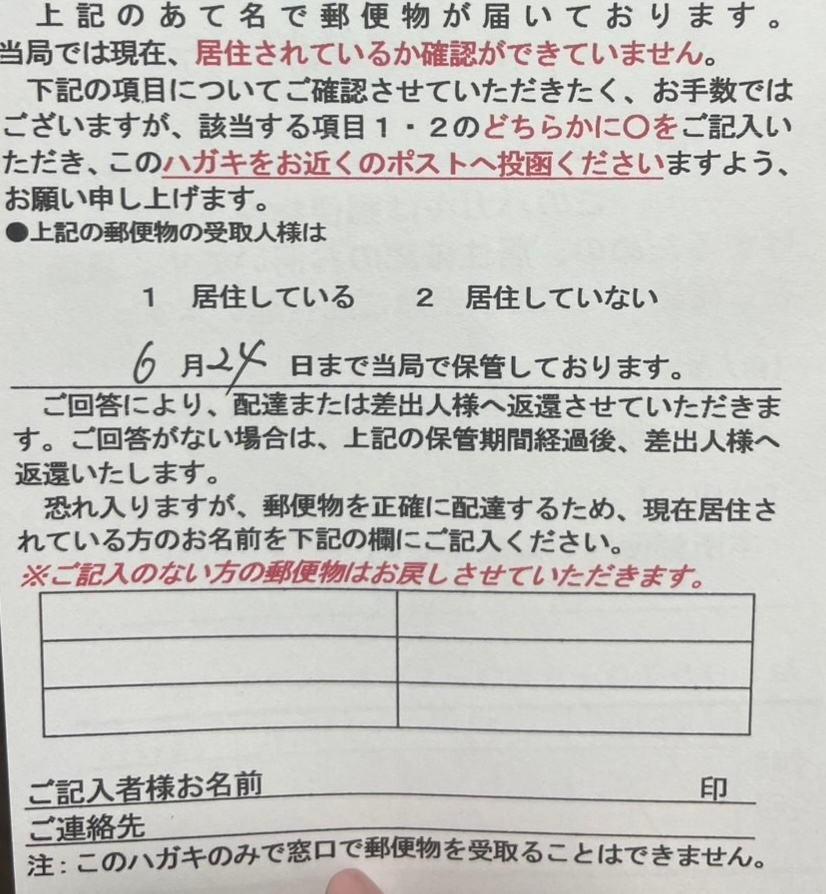 上記のあて名で郵便物が届いております。
当局では現在、居住されているか確認ができていません。
下記の項目についてご確認させていただきたく、お手数では
ございますが、該当する項目１・２のどちらかに〇をご記入い
ただき、このハガキをお近くのポストへ投函くださいますよう、
お願い申し上げます。
●上記の郵便物の受取人様は
１　居住している　　２　居住していない
6月24日まで当局で保管しております。
ご回答により、配達または差出人様へ返還させていただきま
す。ご回答がない場合は、上記の保管期間経過後、差出人様へ
返還いたします。
恐れ入りますが、郵便物を正確に配達するため、現在居住さ
れている方のお名前を下記の欄にご記入ください。
※ご記入のない方の郵便物はお戻しさせていただきます。
ご記入者様お名前　　印
ご連絡先
注：このハガキのみで窓口で郵便物を受取ることはできません。